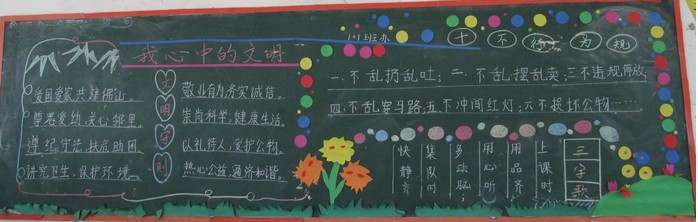 我心中的文明
101班办
十不行为规
爱国爱家共建佛山。
尊老爱幼,关心邻里。
遵纪守法,扶危助困。
讲究卫生,保护环境。
文明守则
敬业有为务实诚信。
崇尚科学,健康生活。
以礼待人,爱护公物。
热心公益 通济和谐。
一.不乱扔乱吐;二.不乱摆乱卖;三不违规停放;
四.不乱穿马路;五.不冲闯红灯;六不损坏公物……
三字歌
上课时
用品齐
用心听
多动脑
集队时
快静齐